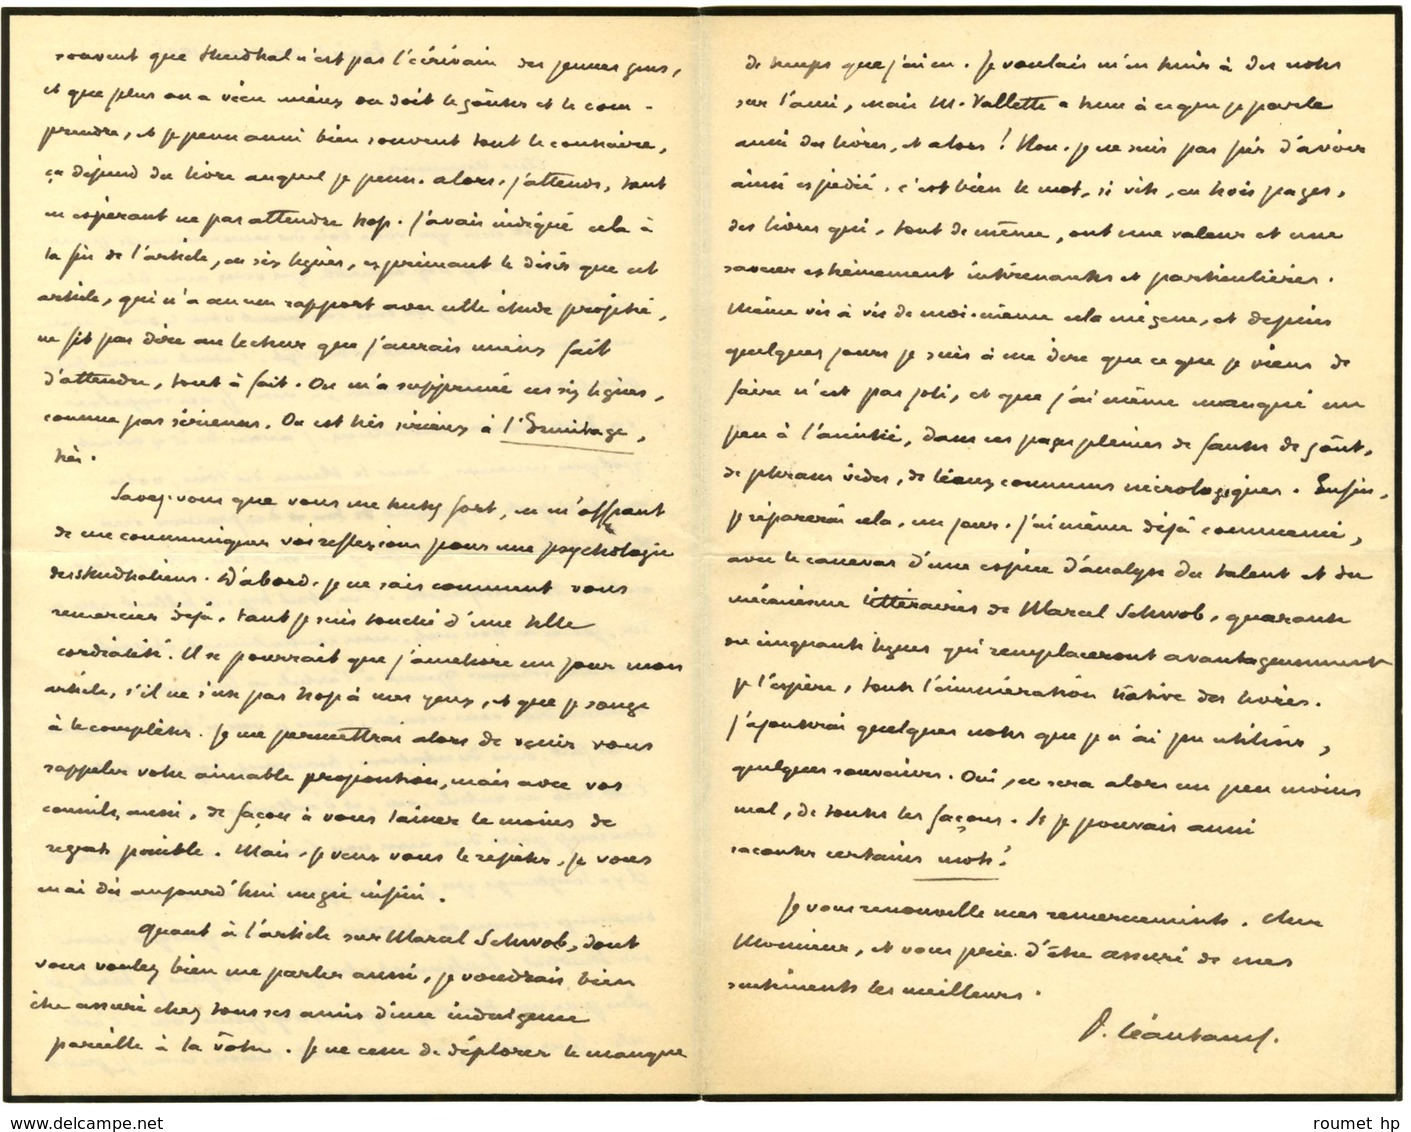 souvent que Stendhal n'est pas l'écrivain des jeunes gens,
et que plus on a vécu mieux on doit le goûter et le com-
prendre, et je pense aussi bien souvent tout le contraire,
ça dépend du livre auquel je pense. alors, j'attends, tout
en espérant ne pas attendre trop. J'avais indiqué cela à
la fin de l'article, en six lignes, exprimant le désir que cet
article, qui n'a aucun rapport avec cette étude projetée,
ne fît pas dire au lecteur que j'aurais mieux fait
d'attendre, tout à fait. On m'a supprimé ces six lignes,
comme pas sérieuses. On est très sérieux à l'Ermitage,
très.
Savez-vous que vous me tentez fort, en m'offrant
de me communiquer vos reflexions pour une psychologie
des stendhaliens. D'abord, je ne sais comment vous
remercier déjà, tant je suis touché d'une telle
cordialité. Il se pourrait que j'améliore un jour mon
article, s'il ne s'use pas trop à mes yeux, et que je songe
à le compléter. Je me permettrai alors de venir vous
rappeler votre aimable proposition, mais avec vos
conseils, aussi, de façon à vous laisser le moins de
regrets possible. Mais, je veux vous le répéter, je vous
en ai dès aujourd'hui un gré infini.
Quant à l'article sur Marcel Schwob, dont
vous voulez bien me parler aussi, je voudrais bien
être assuré chez tous ses amis d'une indulgence
pareille à la vôtre. Je ne cesse de déplorer le manque
de temps que j'ai eu. Je voulais m'en tenir à des notes
sur l'ami, mais M. Vallette a tenu à ce que je parle
aussi des livres, et alors! Non, je ne suis pas fier d'avoir
ainsi expédié, c'est bien le mot, si vite, en trois pages,
des livres qui, tout de même, ont une valeur et une
saveur extrêmement intéressantes et particulières.
Même vis à vis de moi-même cela me gêne, et depuis
quelques jours je suis à me dire que ce que je viens de
faire n'est pas joli, et que j'ai même manqué un
peu à l'amitié, dans ces pages pleines de fautes de goût,
de phrases vides, de lieux communs nécrologiques. Enfin,
je réparerai cela, un jour. J'ai même déjà commencé,
avec le canevas d'une espèce d'analyse du talent et du
mécanisme littéraires de Marcel Schwob, quarante
ou cinquante lignes qui remplaceront avantageusement
je l'espère, toute l'énumération hâtive des livres.
J'ajouterai quelques notes que je n'ai pu utiliser,
quelques souvenirs. Oui, ce sera alors un peu moins
mal, de toutes les façons. Si je pouvais aussi
raconter certains mots!
Je vous renouvelle mes remerciements, cher
Monsieur, et vous prie d'être assuré de mes
sentiments les meilleurs.
P. Léautaud.
www.delcampe.net
roumet hp